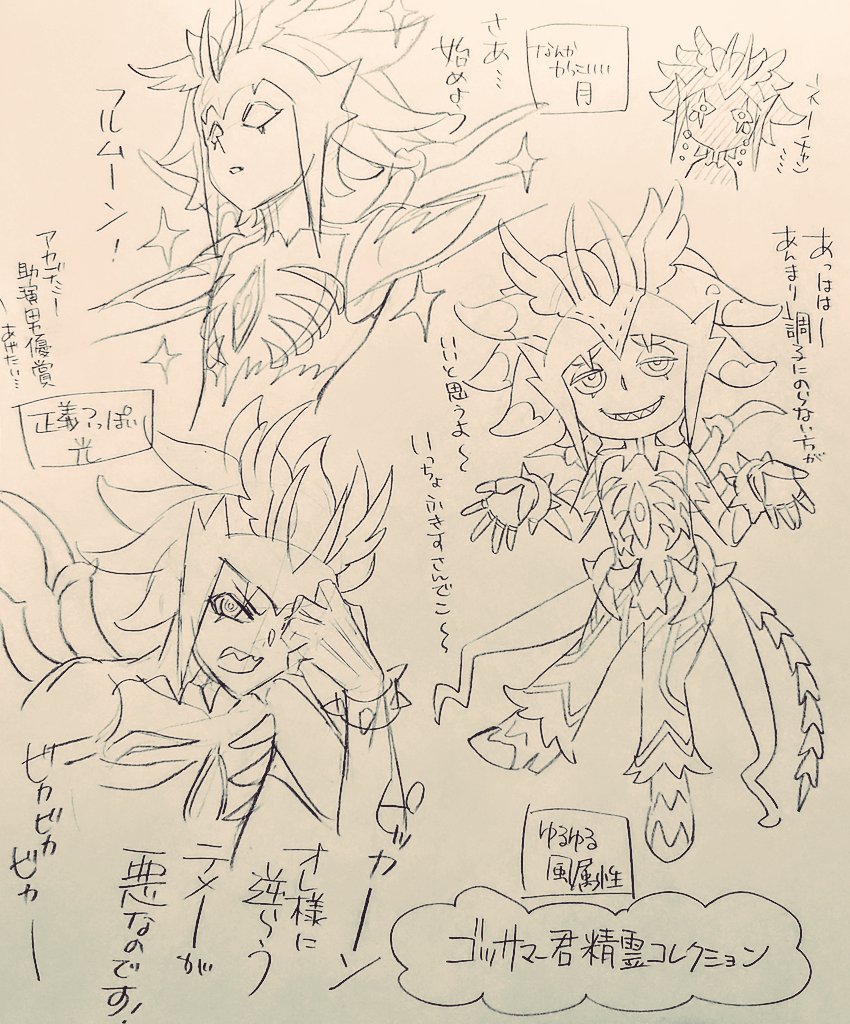 さあ…
始めよう
フルムーン!
なんか
かっこいい
月
ネーチャン……
あっはは〜
あんまり調子にのらない方が
いいと思うよ〜
いっちょふきすさんでこ〜
助演男優賞
あげたい…
正義っぽい
光
ピカーン
オレ様に
逆らう
テメーが
悪なのです!
ビカビカ
ビカー
ゆるゆる
風属性
ゴッサマー君精霊コレクション